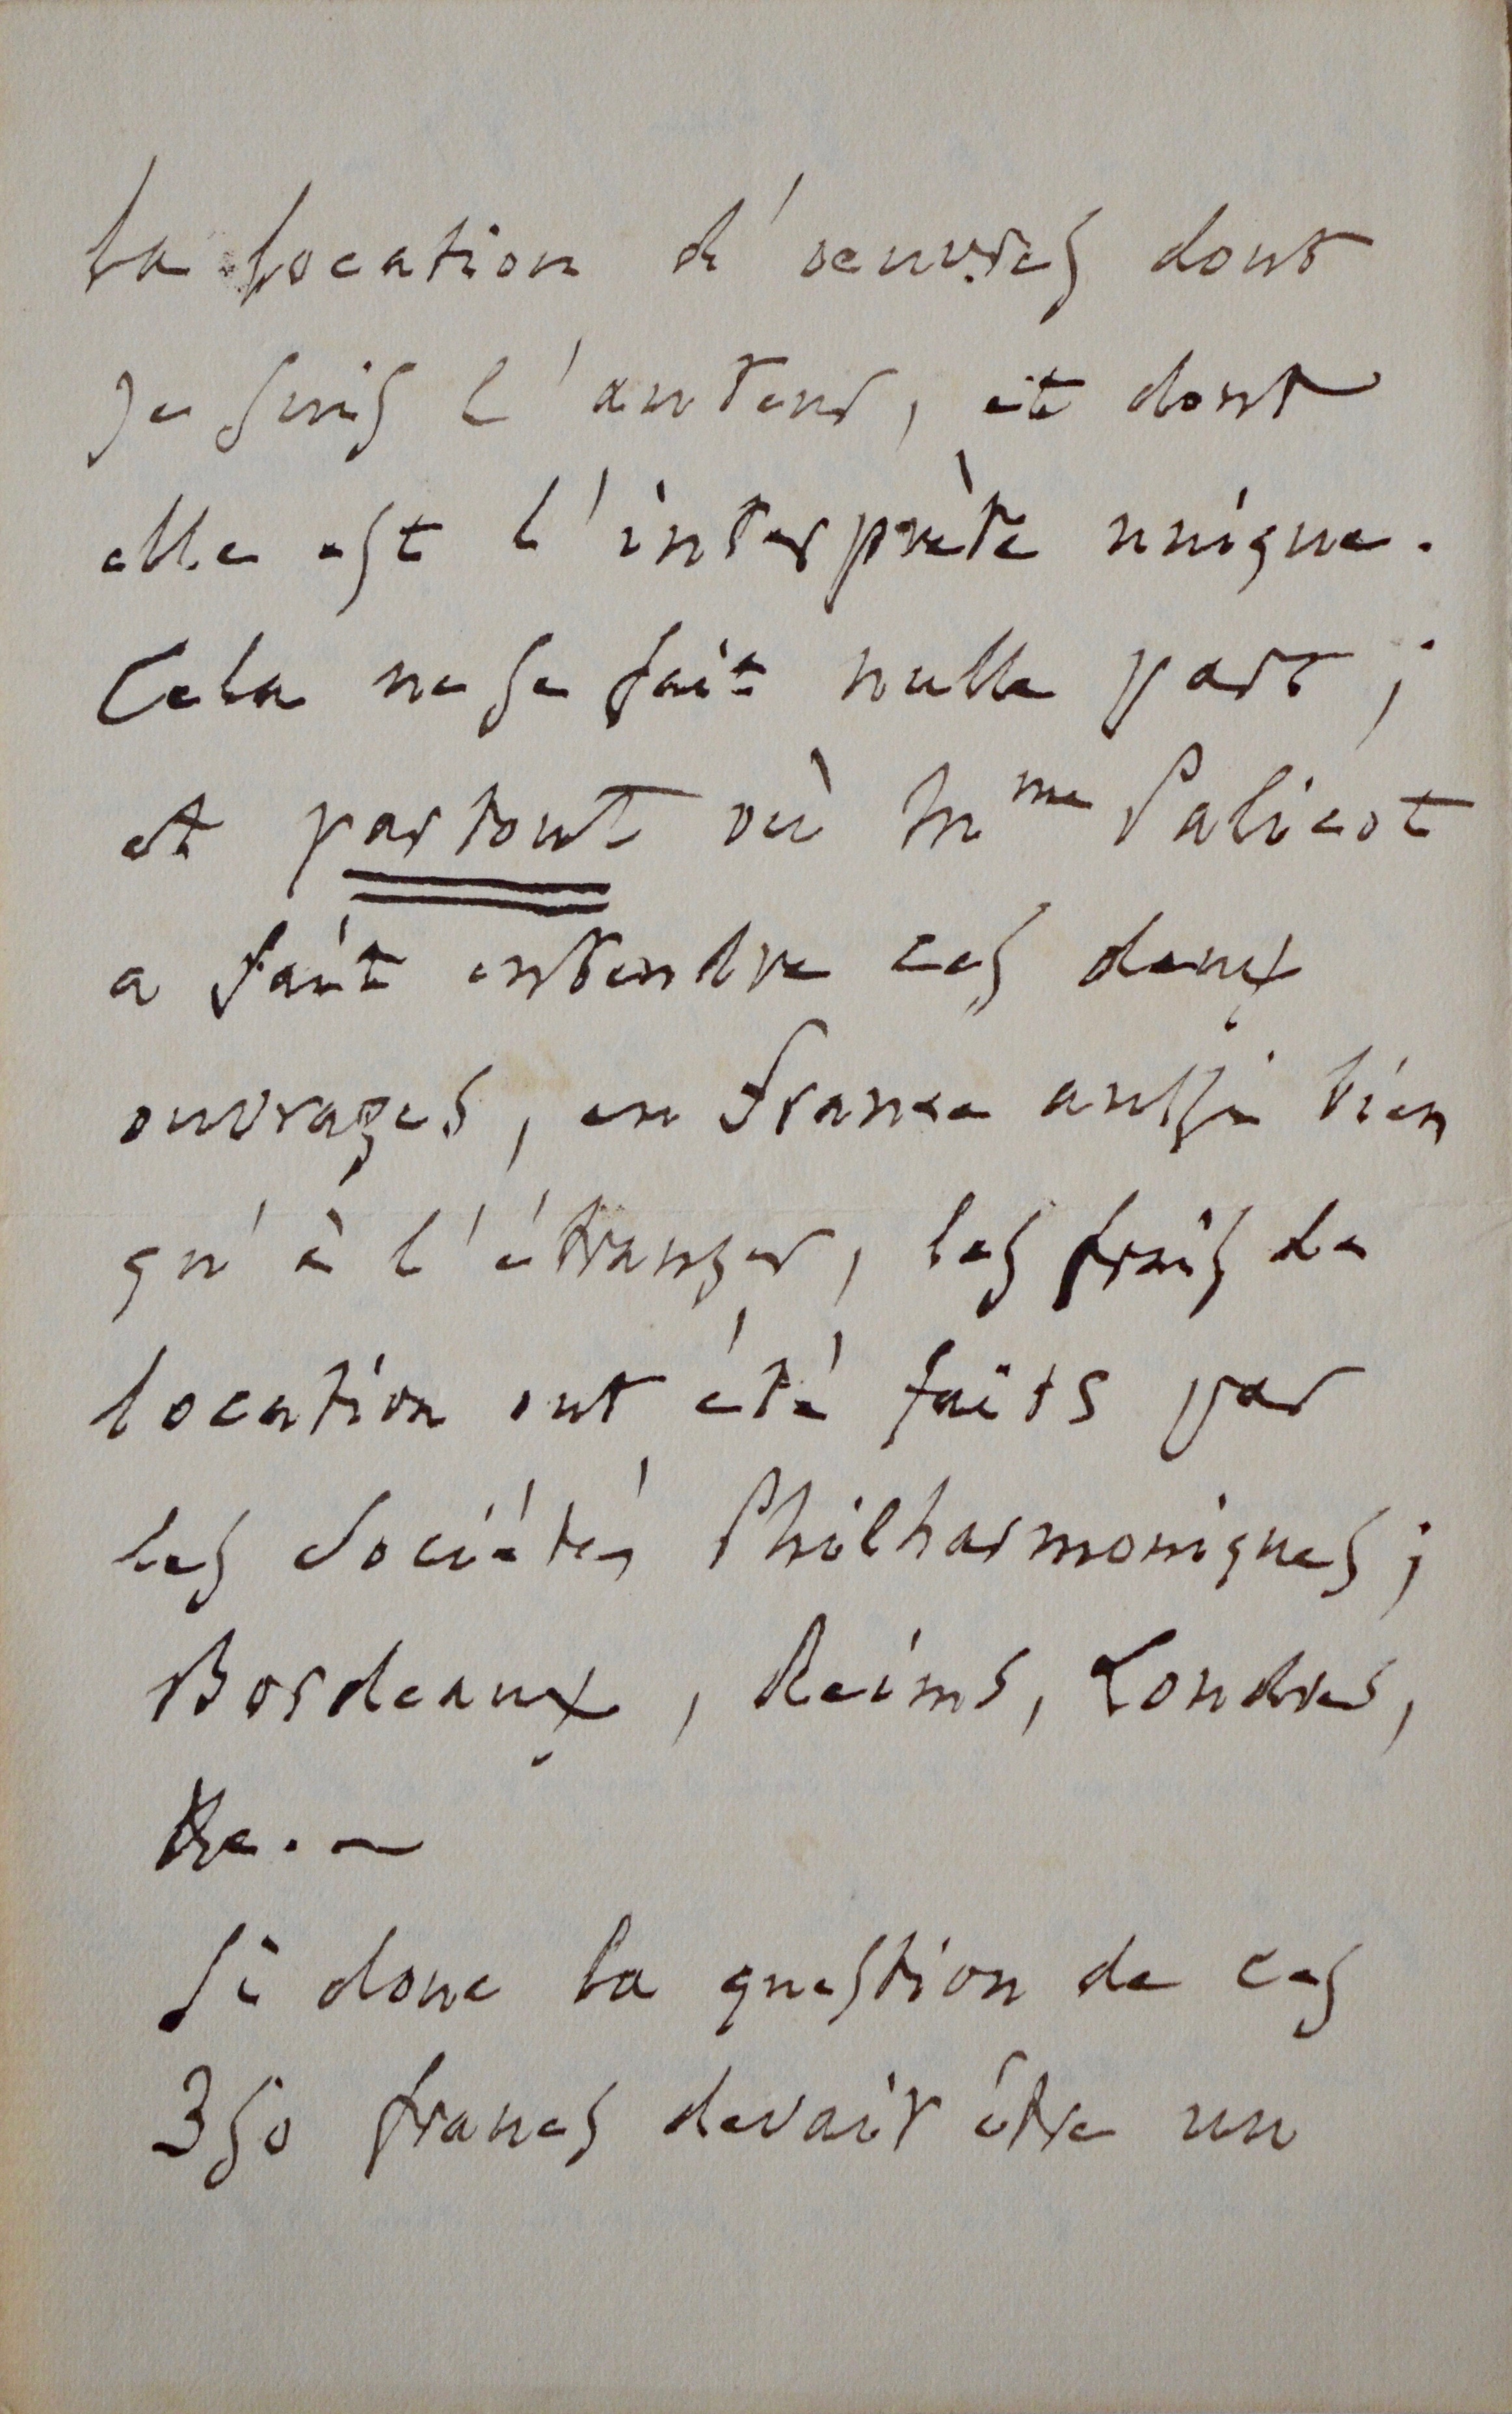 la location d'oeuvres dont
je suis l'auteur, et dont
elle est l'interprète unique.
Cela ne se fait nulle part ;
et partout où Mme Palicot
a fait entendre ces deux
ouvrages, en France aussi bien
qu'à l'étranger, les frais de
location ont été faits par
les Sociétés Philharmoniques ;
Bordeaux, Reims, Londres,
&c. —
Si donc la question de ces
350 francs devait être un